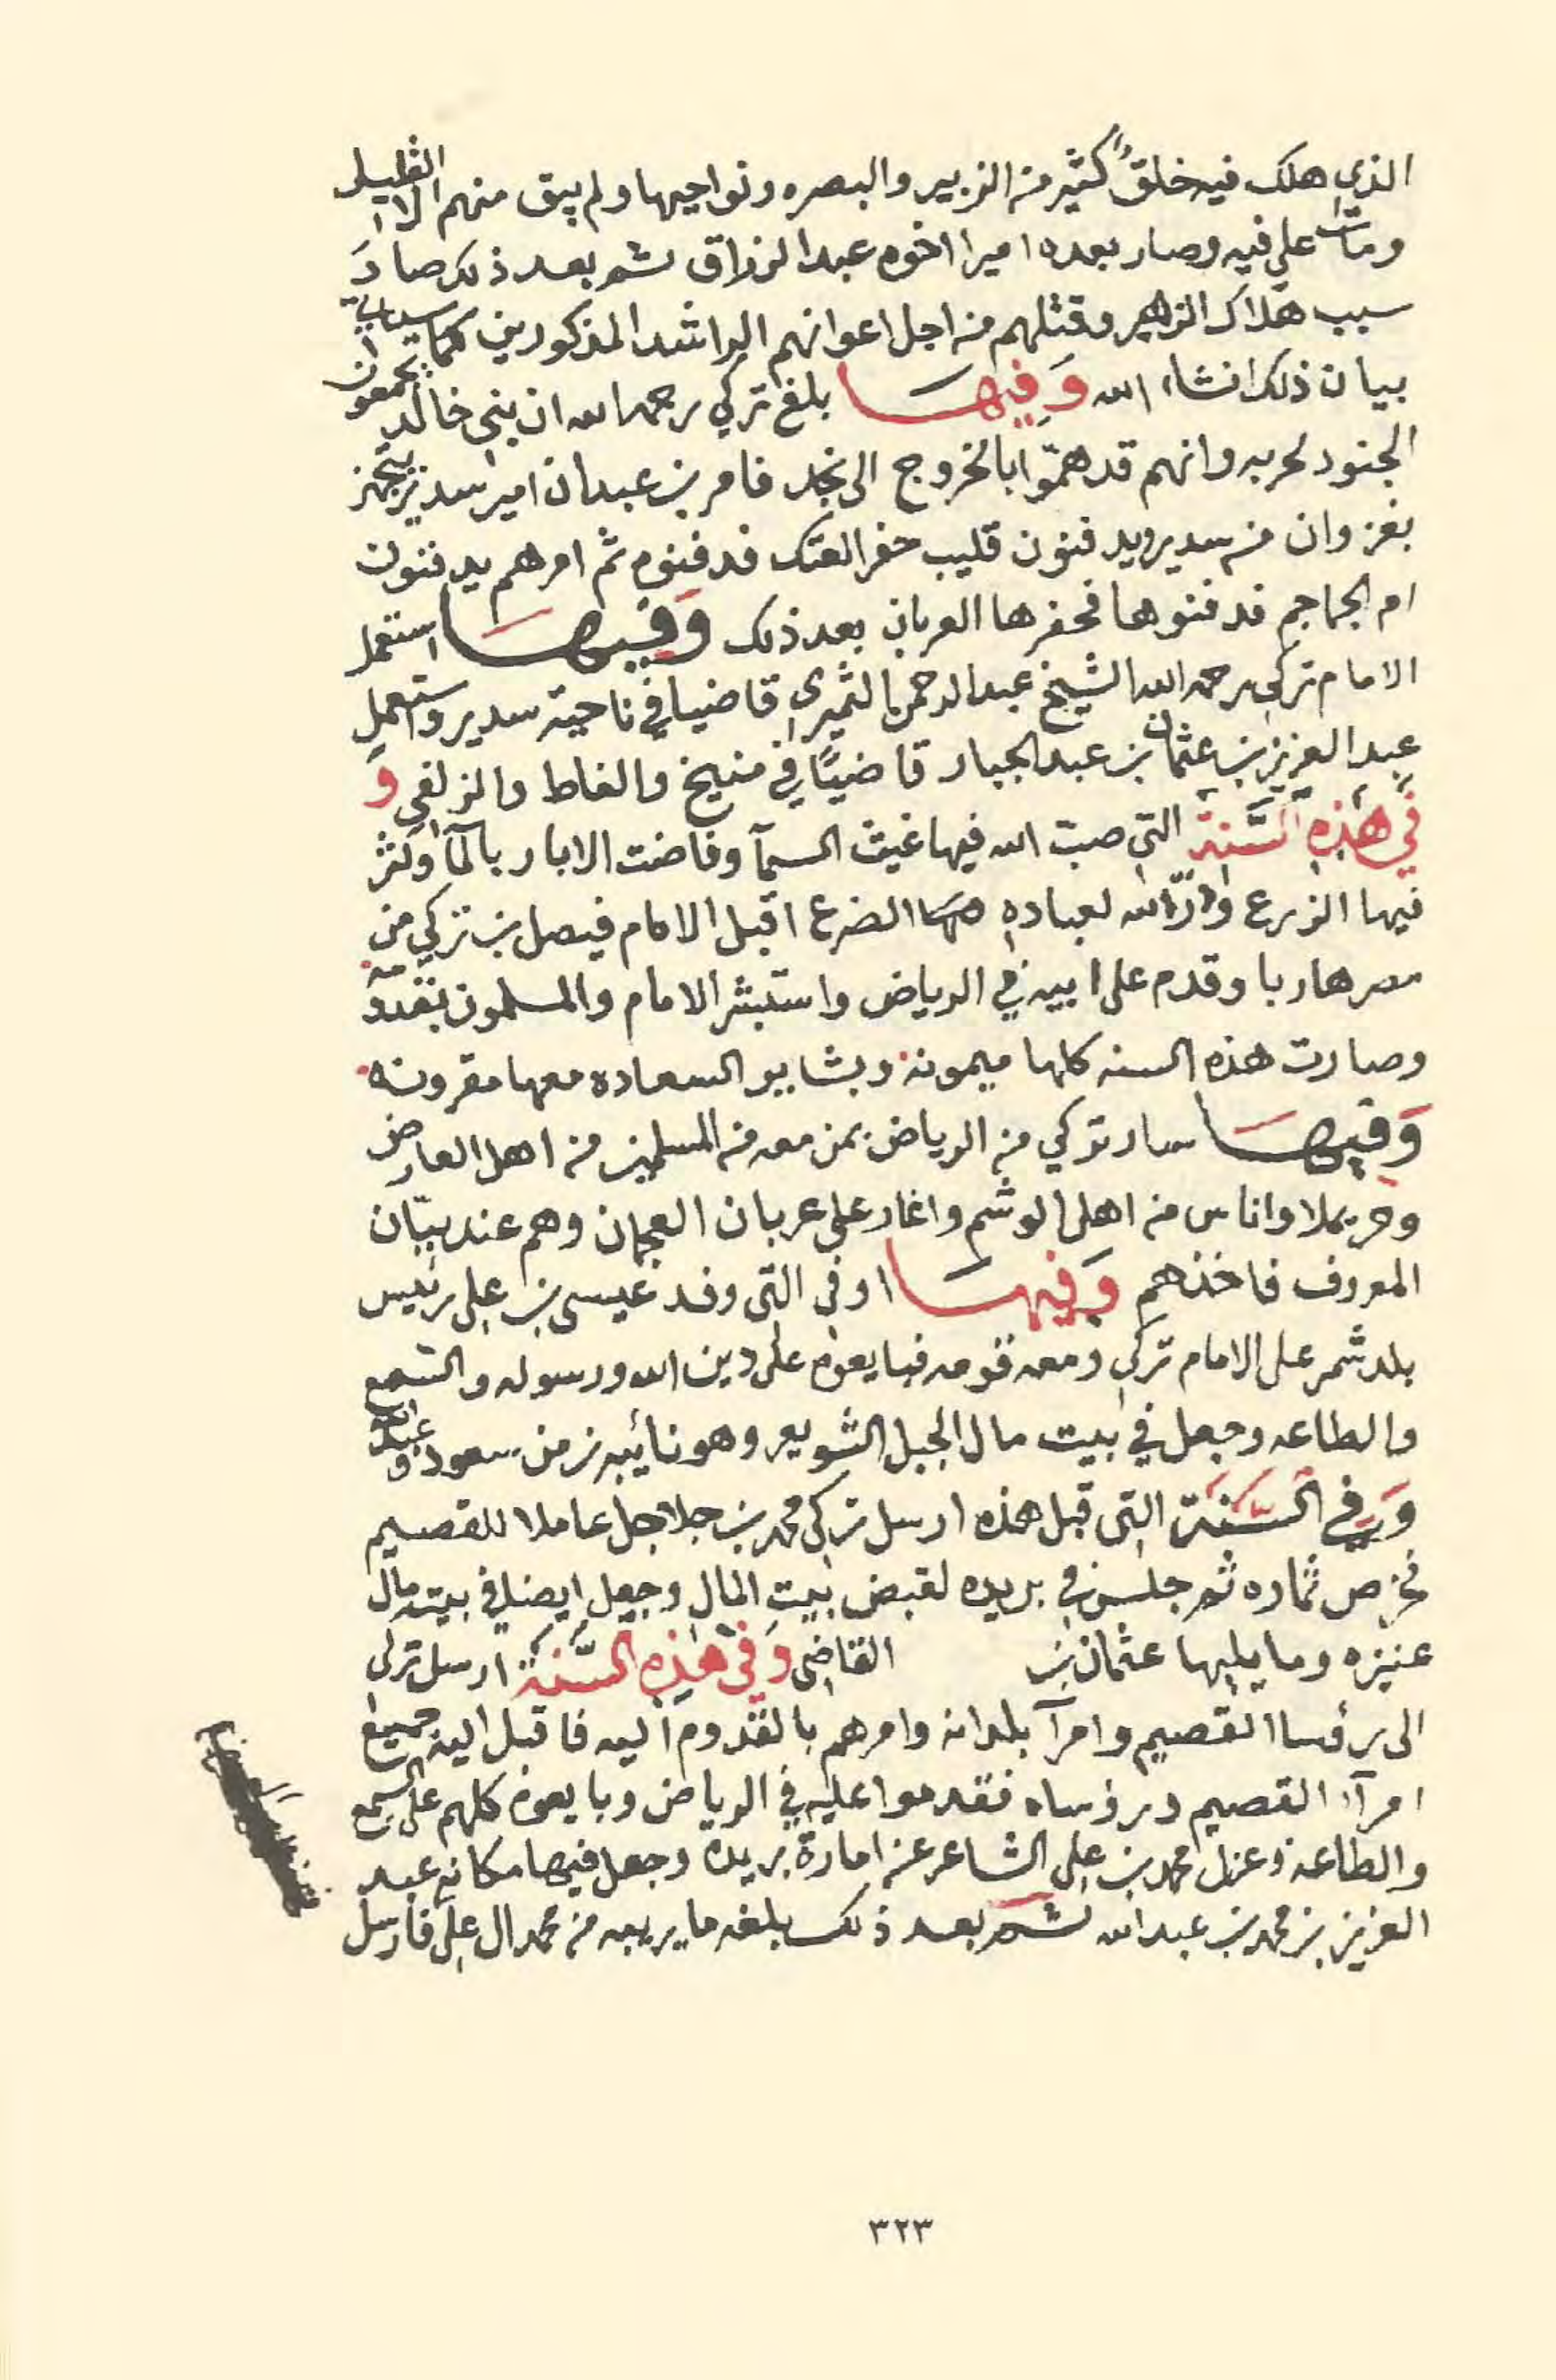 الذي هلك فيه خلقٌ كثير من الزبير والبصره ونواحيها ولم يبق منهم الا القليل
ومات علي فيه وصار بعده اميرا اخوه عبد الرزاق ثم بعد ذلك صارَ
سبب هلاك الزهير وقتلهم من اجل اعوانهم الراشد المذكورين كما سيأتي
بيان ذلك انشاء الله وَفِيهَا بلغ تركي رحمه الله ان بني خالد يجمعون
الجنود لحربه وانهم قد همّوا بالخروج الى نجد فامر بن عبدان امير سدير يتجهز
بغزوان من سدير ويدفنون قليب حفر العتك فدفنوه ثم امرهم يدفنون
ام الجماجم فدفنوها فحفرها العربان بعد ذلك وَفيهَا استعمل
الامام تركي رحمه الله الشيخ عبد الرحمن الثميري قاضيا في ناحية سدير واستعمل
عبد العزيز بن عثمان بن عبد الجبار قاضيًا في منيخ والغاط والزلفي وَ
في هٰذِهِ السَّنة التي صبّ الله فيها غيث السمآ وفاضت الابار بالمآ وكثر
فيها الزرع وادرّ الله لعباده الضرع اقبل الامام فيصل بن تركي من
مصر هاربا وقدم على ابيه في الرياض واستبشر الامام والمسلمون بقدومه
وصارت هذه السنه كلها ميمونه وبشاير السعاده معها مقرونه
وَفيهَا سار تركي من الرياض بمن معه من المسلمين من اهل العارض
وحريملا واناس من اهل الوشم واغار على عربان العجمان وهم عند بيّان
المعروف فاخذهم وَفيهَا او في التي وفد عيسى بن علي رئيس
بلد شمر على الامام تركي ومعه قومه فبايعوه على دين الله ورسوله والسمع
والطاعه وجعل في بيت مال الجبل الشويعر وهو نائبه زمن سعود و عبد الله
وَفي السَّنَة التي قبل هذه ارسل تركي محمد بن جلاجل عاملا للقصيم
فخرص ثماره ثم جلس في بريده لقبض بيت المال وجعل ايضا في بيت مال
عنيزه وما يليها عثمان بن القاضي وَفي هٰذِهِ السَّنَة ارسل تركي
الى رؤسا القصيم وامرآ بلدانه وامرهم بالقدوم اليه فاقبل اليه جميع
امرآء القصيم ورؤساه فقدموا عليه في الرياض وبايعوه كلهم على السمع
والطاعه وعزل محمد بن علي الشاعر عن امارة بريده وجعل فيها مكانه عبد
العزيز بن محمد بن عبد الله ثم بعد ذلك بلغه ما يريبه من محمد ال علي فارسل
٣٢٣